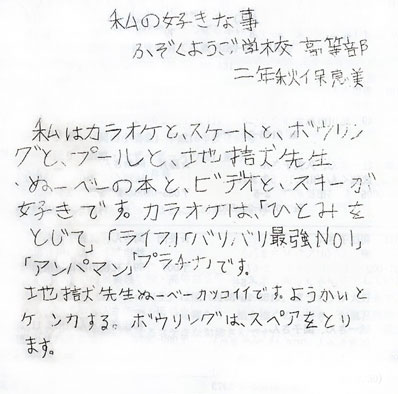 私の好きな事
ふぞくようご学校 高等部
二年秋保恵美
私はカラオケと、スケートと、ボウリン
グと、プールと、地獄先生
ぬーべーの本と、ビデオと、スキーが
好きです。カラオケは、「ひとみを
とじて」「ライフ」「バリバリ最強NO1」
「アンパマン」「プラチナ」です。
地獄先生ぬーべーカッコイイです。ようかいと
ケンカする。ボウリングは、スペアをとり
ます。